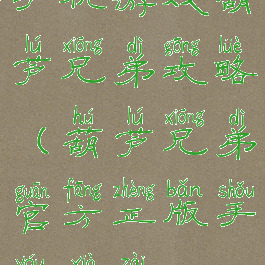 lú xiōng dì gōng lüè
芦兄弟攻略
hú lú xiōng dì
(葫芦兄弟
guān fāng zhèng bǎn shǒu
官方正版手
yóu xià zài